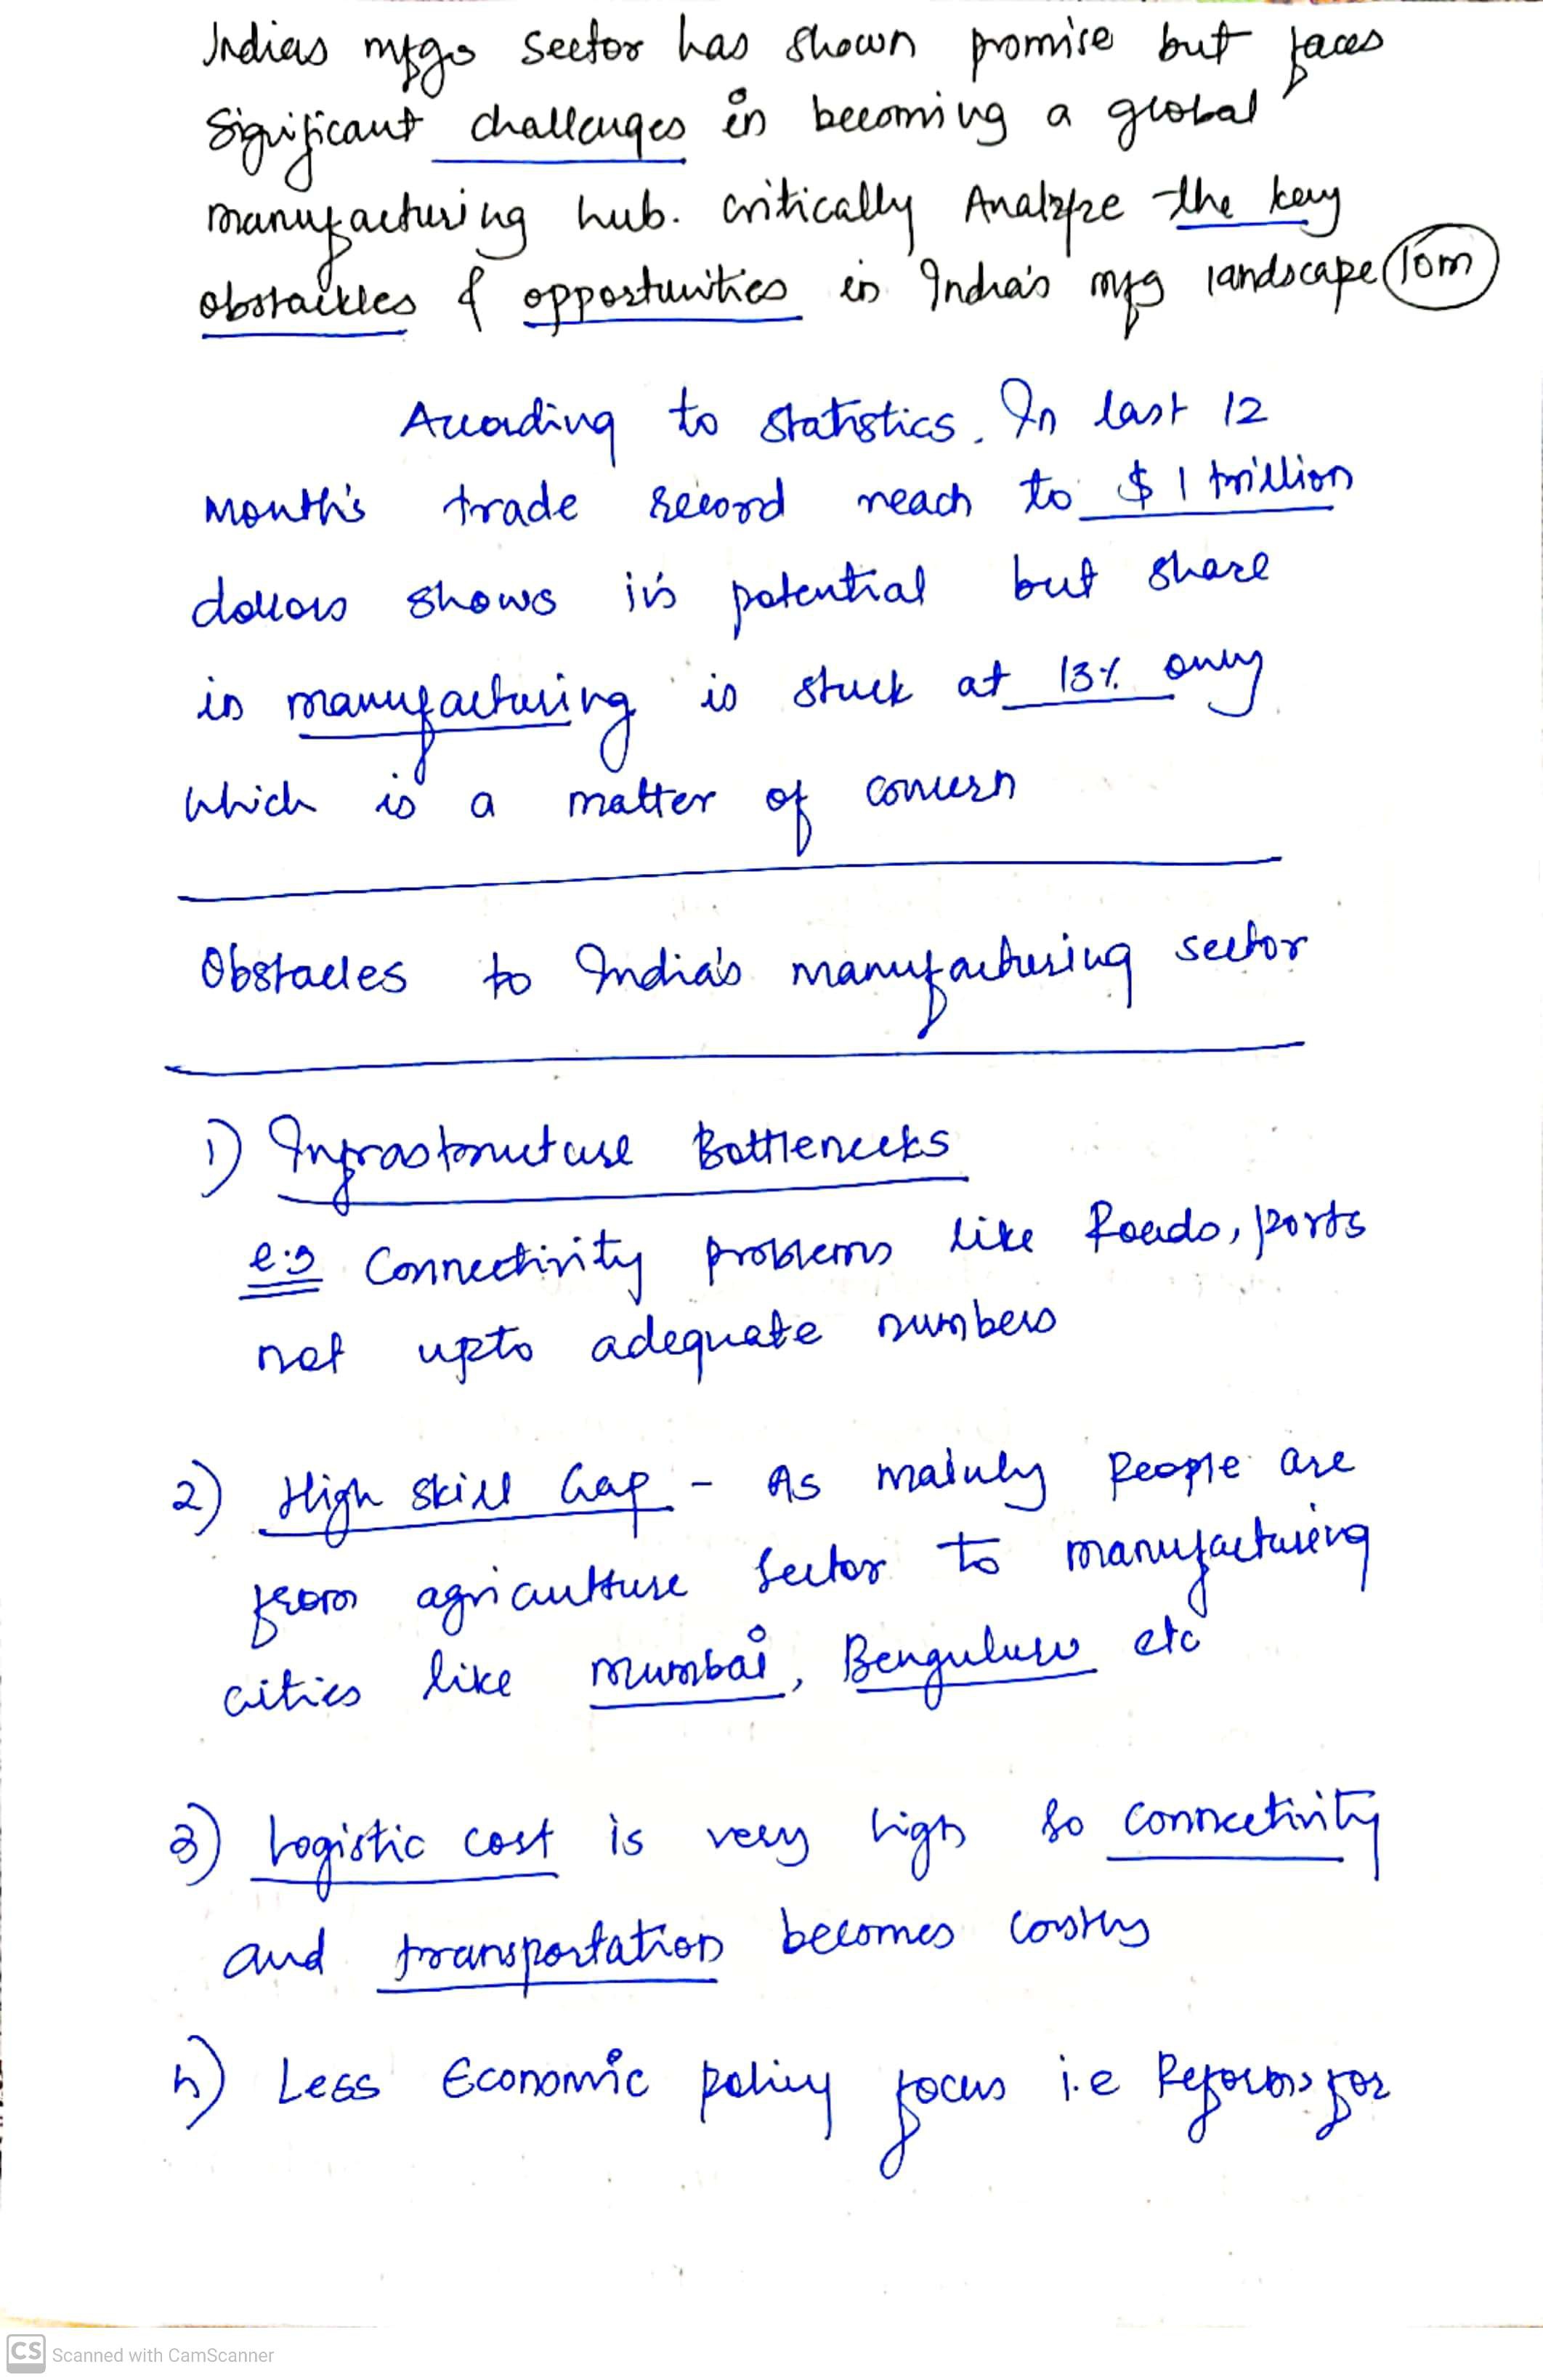 Indias mfgs sector has shown promise but faces
significant challenges in becoming a global
manufacturing hub. critically Analyze the key
obstackles & opportunities in India's mfg landscape 10m
According to statistics. In last 12
month's trade record reach to $ 1 trillion
dollors shows it's potential but share
in manufacturing is stuck at 13% only
which is a matter of concern
Obstacles to India's manufacturing sector
1) Infrastructure Bottlenecks
e.g Connectivity problems like Roads, ports
not upto adequate numbers
2) High skill Gap - As mainly people are
from agriculture sector to manufacturing
cities like mumbai, Benguluru etc
3) Logistic cost is very high so connectivity
and transportation becomes costly
4) Less Economic policy focus i.e Reforms for
CS Scanned with CamScanner